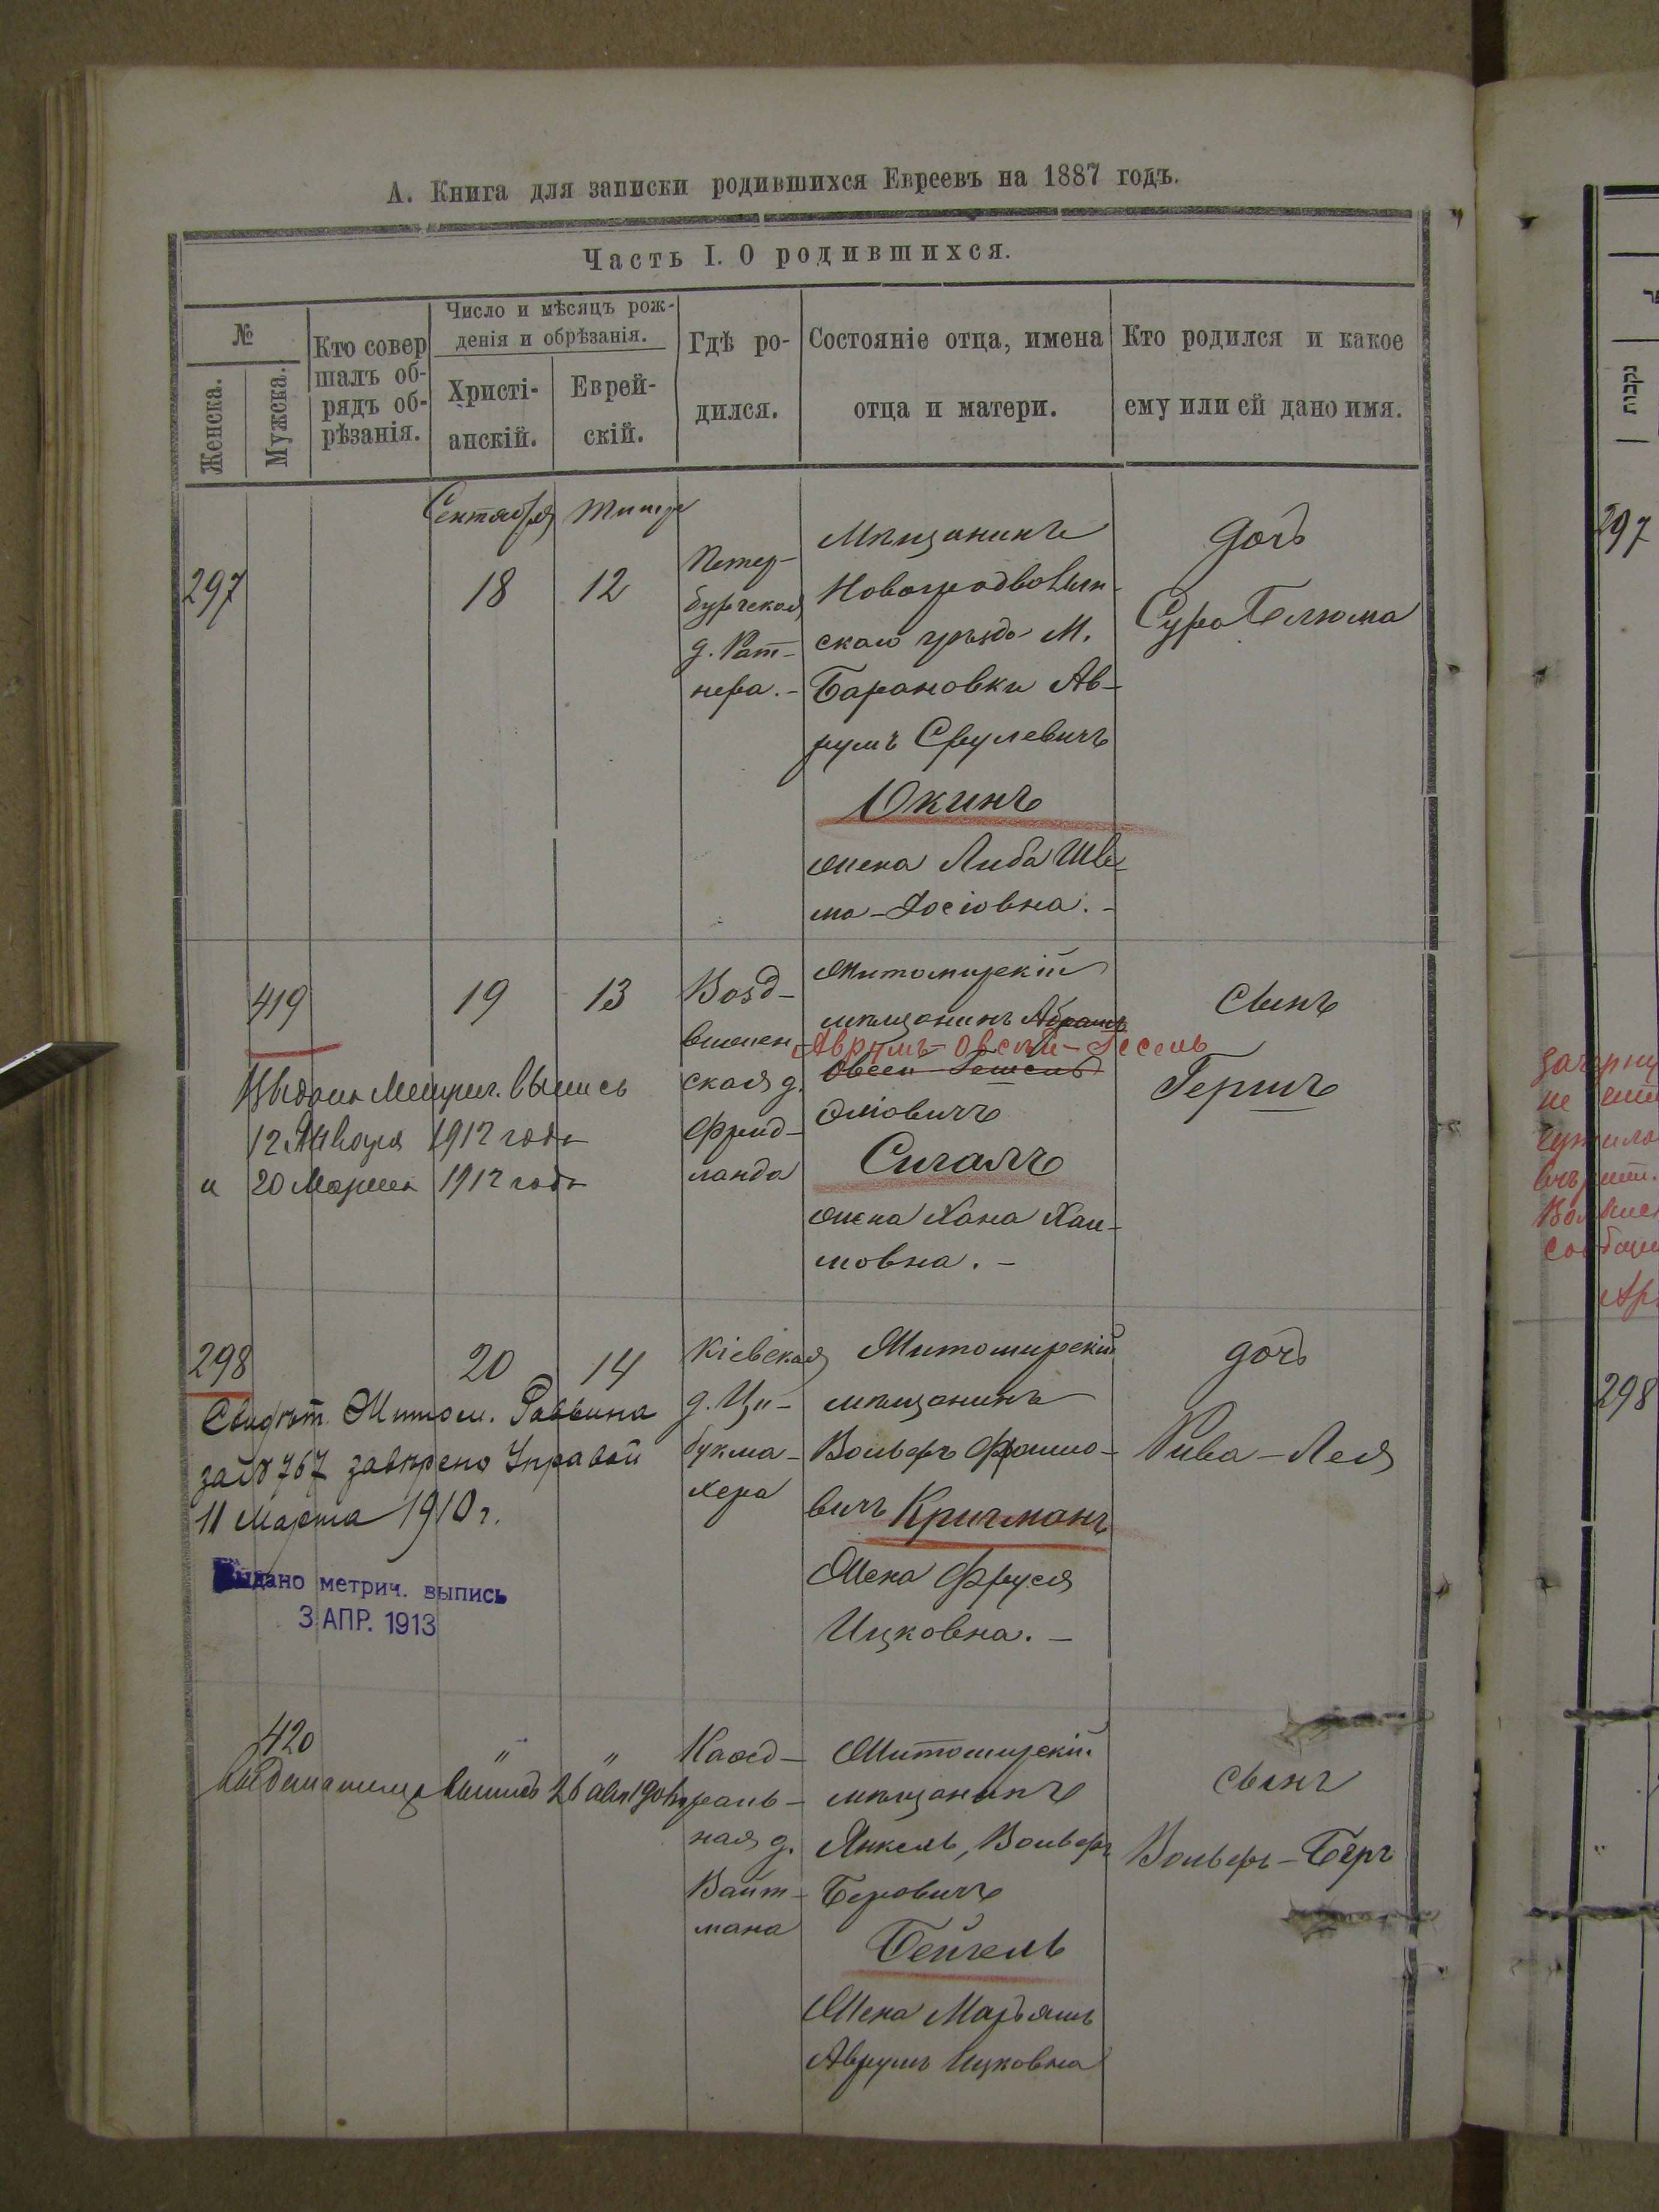 А. Книга для записки родившихся Евреевъ на 1887 годъ.
Часть I. О родившихся.
№
Женска.
Мужска.
Кто совер
шалъ об-
рядъ об-
рѣзанія.
Число и мѣсяцъ рож-
денія и обрѣзанія.
Христі-
анскій.
Еврей-
скій.
Гдѣ ро-
дился.
Состояніе отца, имена
отца и матери.
Кто родился и какое
ему или ей дано имя.
297
Сентября
18
Тишре
12
Петер-
бургская
д. Рат-
нера.-
Мѣщанинъ
Новоградволын-
скаго уѣзда М.
Барановки Ав-
румъ Срулевичъ
Юкинъ
жена Либа Шей-
ма-Іосіовна.-
дочь
Сура Белюма
419
19
13
Возд-
вижен-
ская д.
Фрид-
ланда
Житомирскій
мѣщанинъ Абрамъ
Аврумъ-Овсѣй-Гесель
Овсей Гешель
Оліовичъ
Сигалъ
жена Хана Хаи-
мовна.-
сынъ
Гершъ
Выдана Метрич. выпись
12 Января 1912 года
и 20 Марта 1912 года
298
20
14
Кіевская
д. Ци-
букма-
хера
Житомирскій
мѣщанинъ
Вольфъ Фроимо-
вичъ Кричманъ
Жена Фруся
Ицковна.-
дочь
Рива-Лея
Свидѣт. Житом. Раввина
за № 767 завѣрено Управой
11 Марта 1910 г.
Выдано метрич. выпись
3 АПР. 1913
420
"
"
Каѳед-
раль-
ная д.
Вайт-
мана
Житомирскій
мѣщанинъ
Янкель, Вольфъ
Беровичъ
Бейгель
Жена Марьямъ
Аврумъ Ицковна
сынъ
Вольфъ-Беръ
נקבות
297
298
"